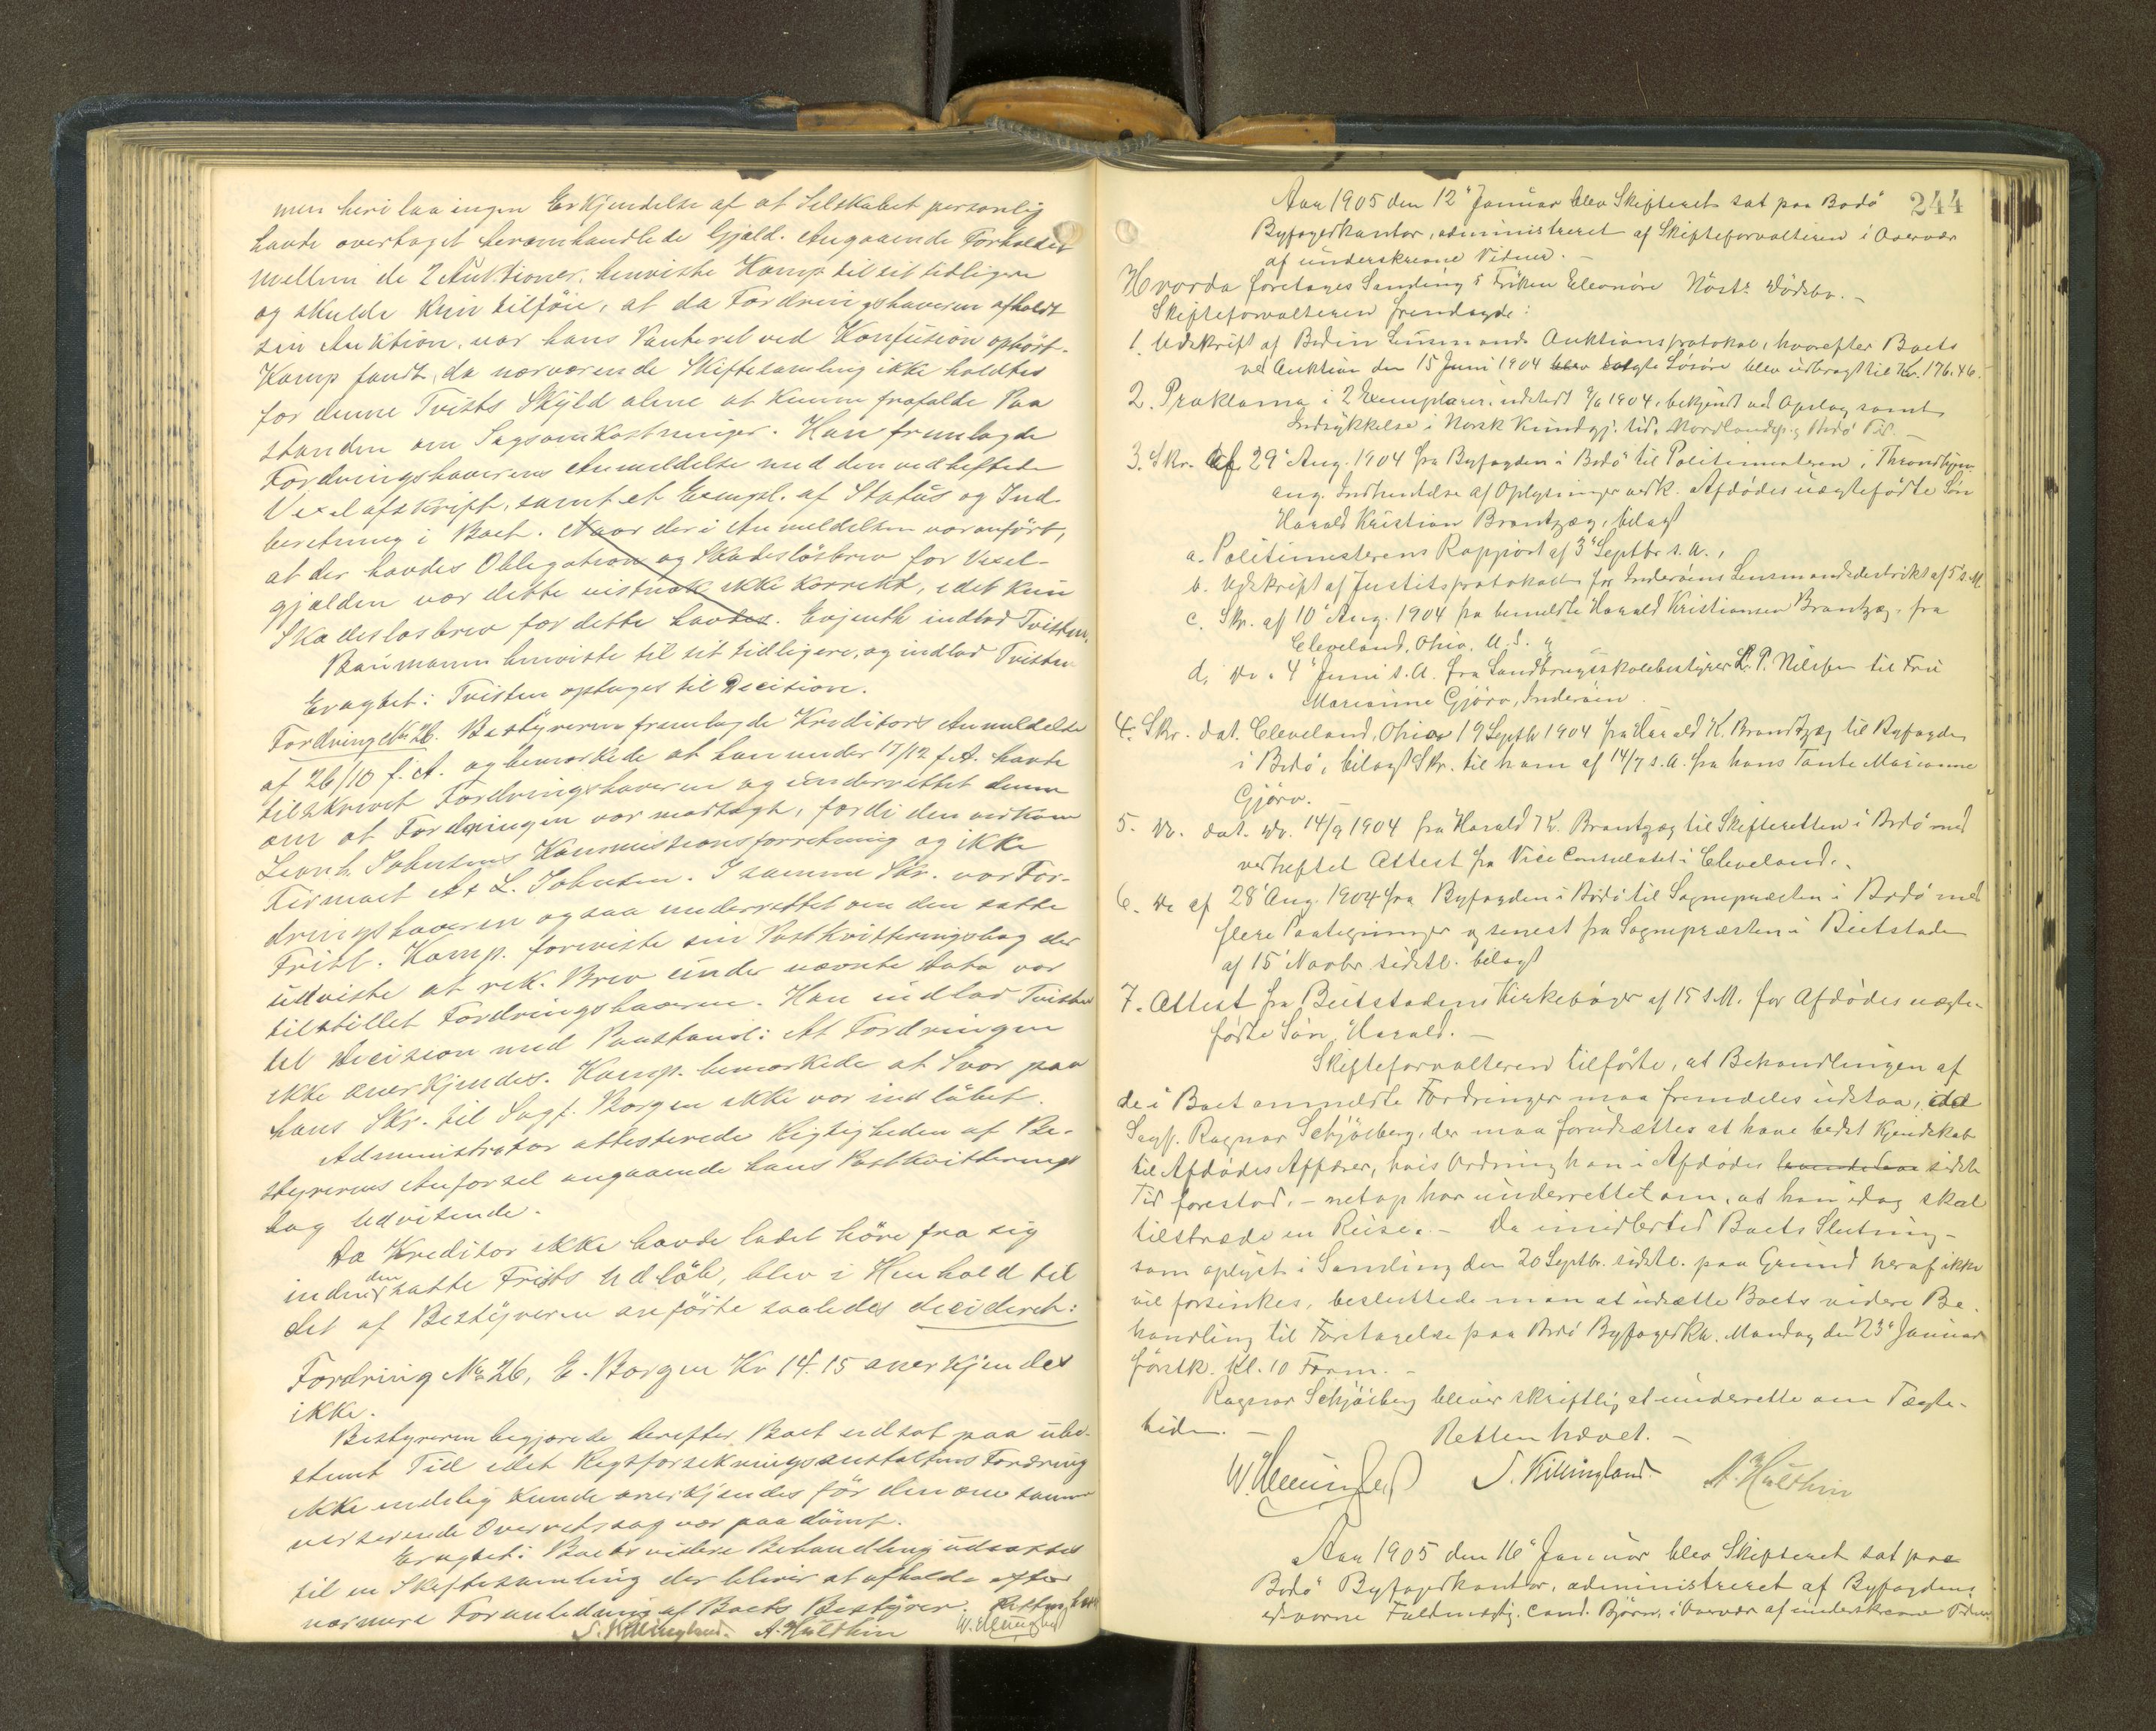 men heri laa ingen Erkjendelse af at Selskabet personlig
havde overtaget heromhandlede Gjæld. Angaaende Forholdet
mellem de 2 Auktioner, henviste Kamp. til sit tidligere
og skulde kun tilföie, at da Fordringshaveren afholdt
sin Auktion, var hans Panteret ved Konfusion ophört.
Kamp fandt, da nærværende Skiftesamling ikke holdtes
for denne Tvists Skyld alene at kunne frafalde Paa
standen om Sagsomkostninger. Han fremlagde
Fordringshaverens Anmeldelse med den vedheftede
Vexelafskrift, samt et Exempl. af Status og Ind
beretning i Boet. Naar der i Anmeldelsen var anført,
at der havdes Obligation og Skadeslösbrev for Vexel-
gjælden var dette vistnok ikke korrekt, idet kun
Skadeslösbrev for dette havdes. Evjenth indlod Tvisten.
Baumann henviste til sit tidligere, og indlod Tvisten
Eragtet: Tvisten optages til Decision.
Fordring No 26. Bestyreren fremlagde Kreditors Anmeldelse
af 26/10 f. A. og bemærkede at han under 17/12 f. A. havde
tilskrevet Fordringshaveren og underrettet denne
om at Fordringen var modsagt, fordi den vedkom
Leonh. Johnsens Kommissionsforretning og ikke
Firmaet A & L. Johnsen. I samme Skr. var For-
dringshaveren ogsaa underrettet om den satte
Frist. Kamp. foreviste sin Postkvitteringsbog der
udviste at rek. Brev under nævnte Dato var
tilstillet Fordringshaveren. Han indlod Tvisten
til Decision med Paastand: At Fordringen
ikke anerkjendes. Kamp. bemærkede at Svar paa
hans Skr. til Sagf. Borgen ikke var indlöbet.
Administrator attesterede Rigtigheden af Be-
styrerens Anförsel angaaende hans Postkvitterings
bog Udvisende.
Da Kreditor ikke havde ladet höre fra sig
inden den satte Frists Udlöb, blev i Henhold til
det af Bestyreren anförte saaledes decideret:
Fordring No 26, E. Borgen Kr 14.15 anerkjendes
ikke.
Bestyreren begjærede derefter Boet udsat paa ube-
stemt Tid idet Rigsforsikringsanstaltens Fordring
ikke endelig kunde anerkjendes för den om samme
verserende Overretssag var paadömt.
Eragtet: Boets videre Behandling udsættes
til en Skiftesamling der bliver at afholde efter
nærmere Foranledning af Boets Bestyrer. Retten hævet
S. Killingland. A. Hulthin W.

244
Aar 1905 den 12te Januar blev Skifteret sat paa Bodö
Byfogedkontor, administreret af Skifteforvalteren i Overvær
af underskrevne Vidner. -
Hvorda foretages Samling i Fröken Eleonöre Nöst: Dödsbo. -
Skifteforvalteren fremlagde:
1. Udskrift af Bodin Lensmands Auktionsprotokol, hvorefter Boets
ved Auktion den 15 Juni 1904 blev solgte Lösöre blev udbragt til Kr. 176.46.
2. Proklama i 2 Exemplarer, udstedt 1904, bekjendt ved Opslag samt
Indrykkelse i Norsk Kundgj. tid. Nordlandsp. og Bodö Tid. -
3. Skr. af 29 Aug. 1904 fra Byfogden i Bodö til Politimesteren i Throndhjem
ang. Indhentelse af Oplysninger vedk. Afdödes uægtefödte Sön
Harald Kristian Brantzæg, bilagt
a. Politimesterens Rapport af 3 Septbr s. A.,
b. Udskrift af Justitsprotokoll for Inderöens Lensmandsdistrikt af 5 s. M.
c. Skr. af 10 Aug. 1904 fra bemeldte Harald Kristiansen Brantzæg, fra
Cleveland, Ohio, U. S.
d. Do. 4 Juni s. A. fra Landbrugsskolebestyrer P. Nilsson til Fru
Marianne Gjörv, Inderöen
4. Skr. dat. Cleveland, Ohio 19 Septb 1904 fra Harald K. Brandtzæg til Byfogden
i Bodö, bilagt Skr. til ham af 14/7 s. A. fra hans Tante Marianne
Gjörv. -
5. Do. dat. Do. 14/9 1904 fra Harald K. Brantzæg til Skifteretten i Bodö med
vedheftet Attest fra Vice Consulatet i Cleveland.
6. Do af 28 Aug. 1904 fra Byfogden i Bodö til Sognepræsten i Bodö med
flere Paategninger og senest fra Sognepræsten i Beitstaden
af 15 Novbr sidstl. bilagt
7. Attest fra Beitstadens Kirkeböger af 15 s. M. for Afdödes uægte-
födte Sön Harald. -
Skifteforvalteren tilförte, at Behandlingen af
de i Boet anmeldte Fordringer maa fremdeles udstaa, idet
Sagf. Ragnar Schjölberg, der maa forudsættes at have bedst Kjendskab
til Afdödes Affærer, hvis Ordning han i Afdödes sidste
Tid forestod, - netop har underrettet om, at han idag skal
tiltræde en Reise. - Da imidlertid Boets Slutning -
som oplyst i Samling den 20 Septbr. sidstl. paa Grund heraf ikke
vil forsinkes, besluttede man at udsætte Boets videre Be-
handling til Foretagelse paa Bodö Byfogedkt. Mandag den 23de Januar
förstk. Kl. 10 Form. -
Ragnar Schjölberg bliver skriftlig at underrette om Tægte-
tiden. - Retten hævet. -
W. S. Killingland A. Hulthin
Aar 1905 den 16de Januar blev Skifteret sat paa
Bodö Byfogedkontor, administreret af Byfogdens
edsvorne Fuldmægtig, cand. Björn, i Overvær af underskrevne Vidner